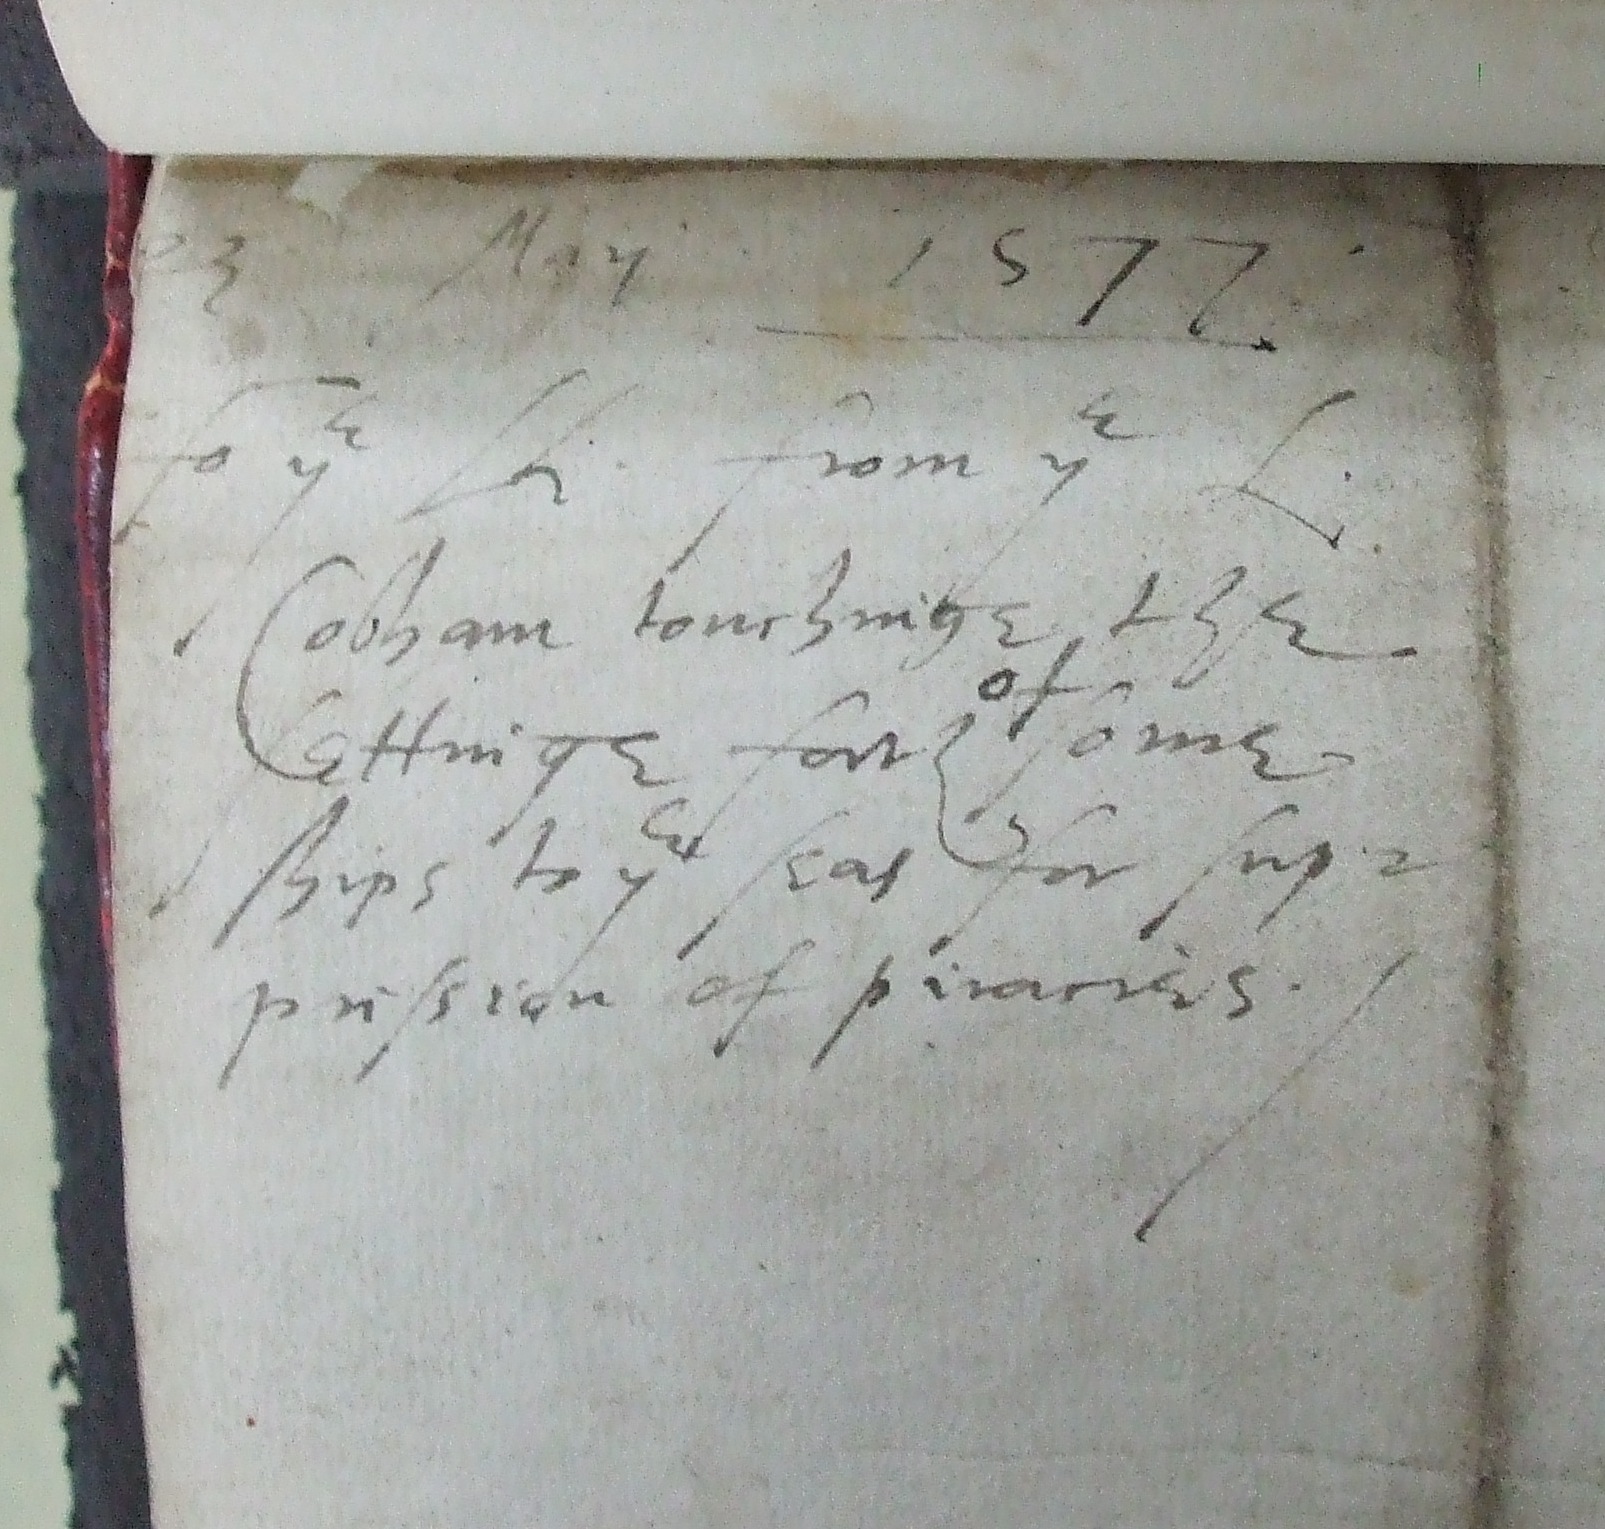 23 May 1577.
To yᵉ LL. from yᵉ L.
Cobham touchinge the
settinge forth of some
ships to yᵉ seas for sup=
pression of piracies.